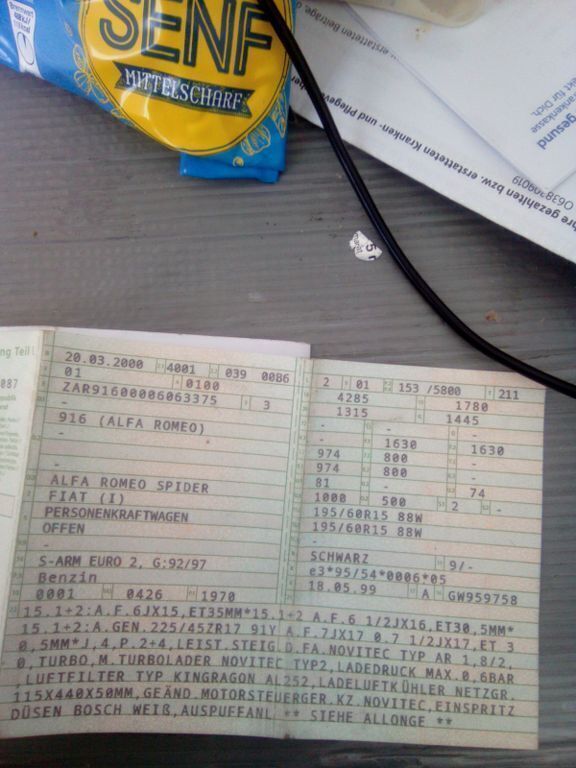 SENF
MITTELSCHARF
gesund
krankenkasse
für Dich.
erstatteten Beiträge
erstatteten Kranken- und Pflegever
hre gezahlten bzw.
ng Teil I
087
20.03.2000 4001 039 0086
01 0100
ZAR91600006063375 3
-
916 (ALFA ROMEO)
-
-
ALFA ROMEO SPIDER
FIAT (I)
PERSONENKRAFTWAGEN
OFFEN
-
S-ARM EURO 2, G:92/97
Benzin
0001 0426 1970
2 01 153 /5800 211
4285 1780
1315 1445
- - -
- 1630 1630
974 800 -
974 800 -
81 - 74
1000 500 2 -
195/60R15 88W
195/60R15 88W
-
SCHWARZ 9/-
e3*95/54*0006*05
18.05.99 A GW959758
15.1+2:A.F.6JX15,ET35MM*15.1+2 A.F.6 1/2JX16,ET30,5MM*
15.1+2:A.GEN.225/45ZR17 91Y A.F.7JX17 0.7 1/2JX17,ET 3
0,5MM*J,4,P.2+4,LEIST.STEIG.D.FA.NOVITEC TYP AR 1,8/2,
0,TURBO,M.TURBOLADER NOVITEC TYP2,LADEDRUCK MAX.0,6BAR
,LUFTFILTER TYP KINGRAGON AL252,LADELUFTKÜHLER NETZGR.
115X440X50MM,GEÄND.MOTORSTEUERGER.KZ.NOVITEC,EINSPRITZ
DÜSEN BOSCH WEIß,AUSPUFFANL ** SIEHE ALLONGE **